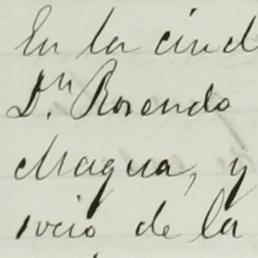 En la ciud
Dn. Rosendo
Magua, y
ivio de la